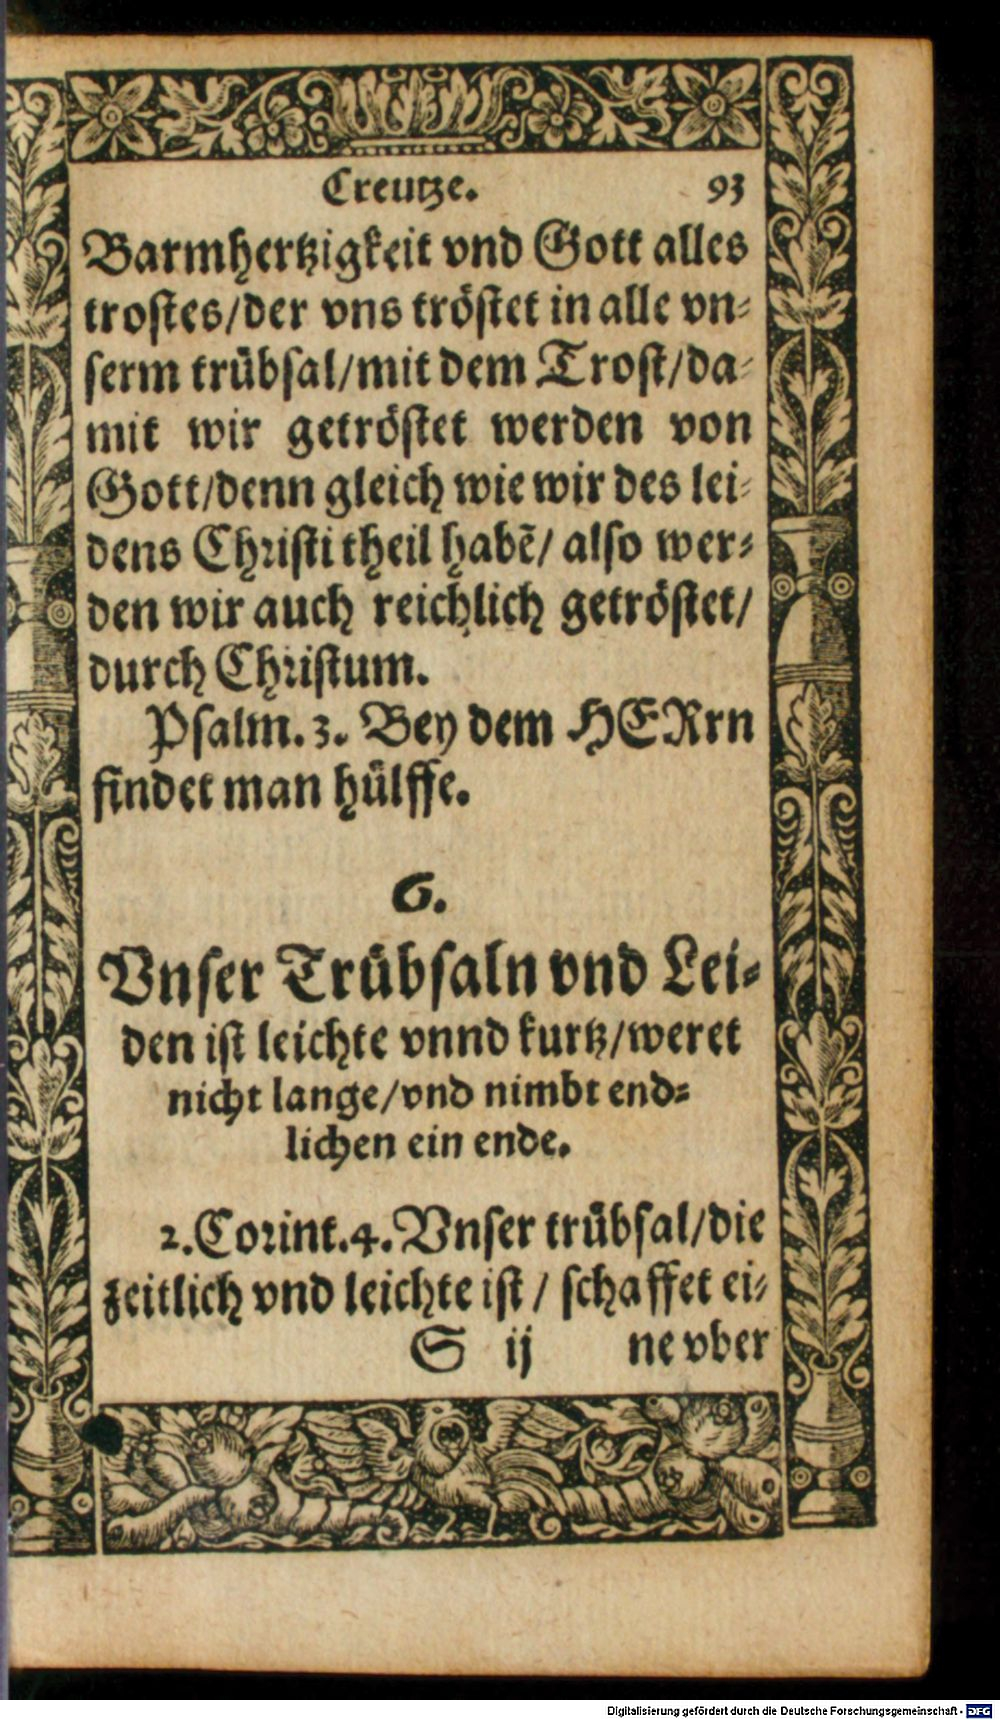 Creutze. 93
Barmhertzigkeit vnd Gott alles
trostes/der vns tröstet in alle vn-
serm trübsal/mit dem Trost/da-
mit wir getröstet werden von
Gott/denn gleich wie wir des lei-
dens Christi theil habẽ/ also wer-
den wir auch reichlich getröstet/
durch Christum.
Psalm. 3. Bey dem HERrn
findet man hülffe.
6.
Vnser Trübsaln vnd Lei-
den ist leichte vnnd kurtz/weret
nicht lange/vnd nimbt end-
lichen ein ende.
2. Corint. 4. Vnser trübsal/die
zeitlich vnd leichte ist / schaffet ei-
S ij ne vber
Digitalisierung gefördert durch die Deutsche Forschungsgemeinschaft - DFG